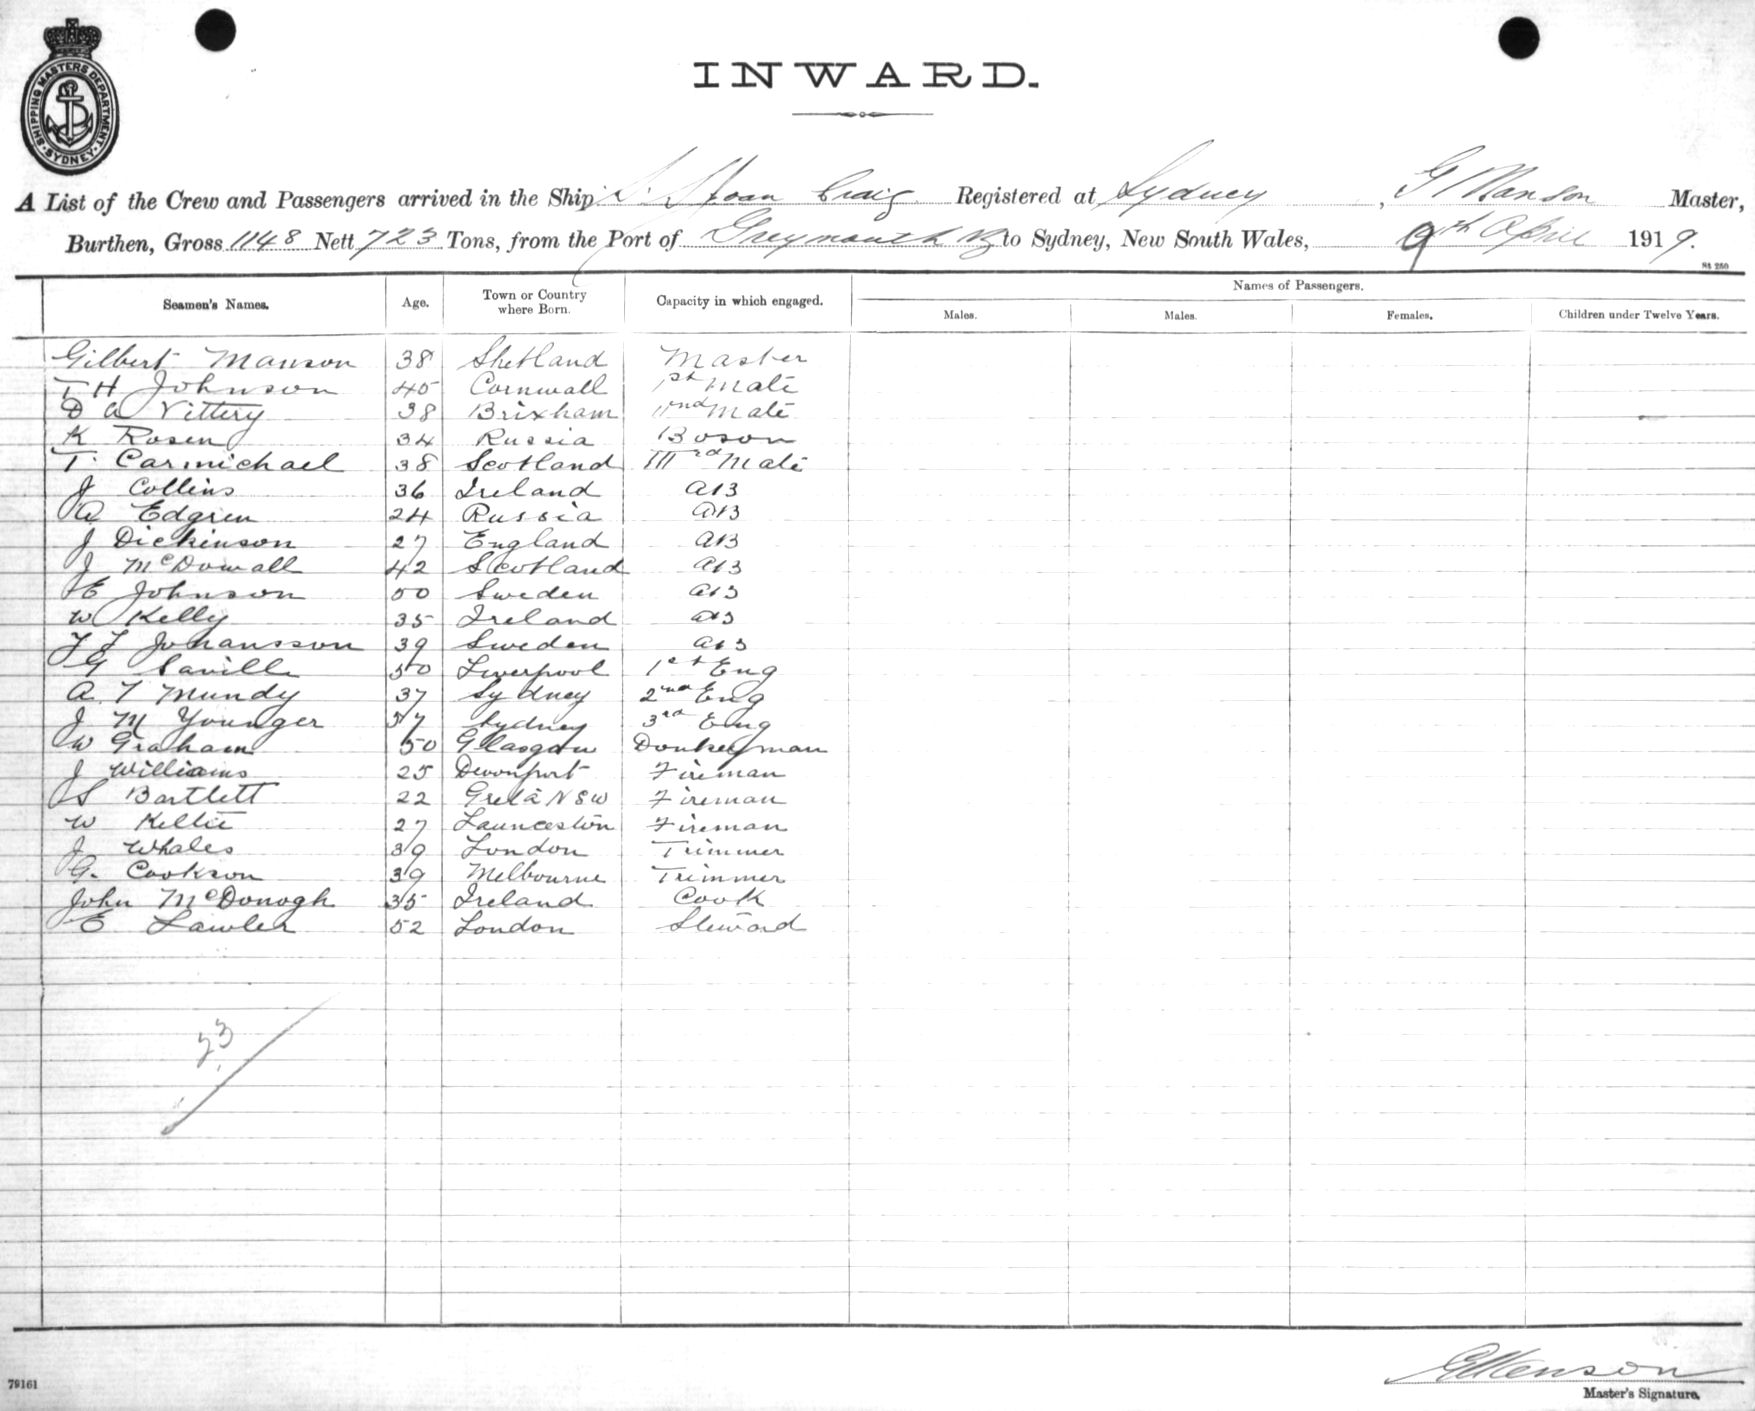 SHIPPING MASTERS DEPARTMENT SYDNEY
INWARD.
A List of the Crew and Passengers arrived in the Ship S. S. Joan Craig Registered at Sydney, G Manson Master,
Burthen, Gross 1148 Nett 723 Tons, from the Port of Greymouth NZ to Sydney, New South Wales, 9th April 1919.
Seamen's Names. Age. Town or Country where Born. Capacity in which engaged. Names of Passengers.
Males. Males. Females. Children under Twelve Years.
Gilbert Manson 38 Shetland Master
T H Johnson 45 Cornwall 1st Mate
D A Vittery 38 Brixham IInd Mate
K Rosen 34 Russia Boson
T. Carmichael 38 Scotland IIIrd Mate
J Collins 36 Ireland AB
A Edgren 24 Russia AB
J Dickinson 27 England AB
J McDowall 42 Scotland AB
E Johnson 50 Sweden AB
W Kelly 35 Ireland AB
F F Johansson 39 Sweden AB
G Saville 50 Liverpool 1st Eng
A T Mundy 37 Sydney 2nd Eng
J M Younger 37 Sydney 3rd Eng
W Graham 50 Glasgow Donkeyman
J Williams 25 Devonport Fireman
S Bartlett 22 Greta NSW Fireman
W Keltie 27 Launceston Fireman
J Whales 39 London Trimmer
G. Cookson 39 Melbourne Trimmer
John McDonogh 35 Ireland Cook
E Lawler 52 London Steward
23
G Manson
Master's Signature.
79161